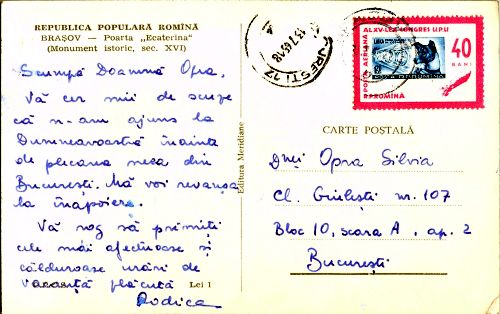 REPUBLICA POPULARĂ ROMÎNĂ
BRAȘOV — Poarta „Ecaterina“
(Monument istoric, sec. XVI)
Scumpă Doamnă Opra,
Vă cer mii de scuze
că n-am ajuns la
Dumneavoastră înainte
de plecarea mea din
București. Mă voi revanșa
la înapoiere.
Vă rog să primiți
cele mai afectuoase și
călduroase urări de
vacanță plăcută
Rodica
Lei 1
Editura Meridiane
AL XV-LEA CONGRES U.P.U.
POȘTA AERIANĂ
40
BANI
R.P. ROMINA
CARTE POSTALĂ
Dnei Opra Silvia
Cl. Giulești nr. 107
Bloc 10, scara A, ap. 2
București